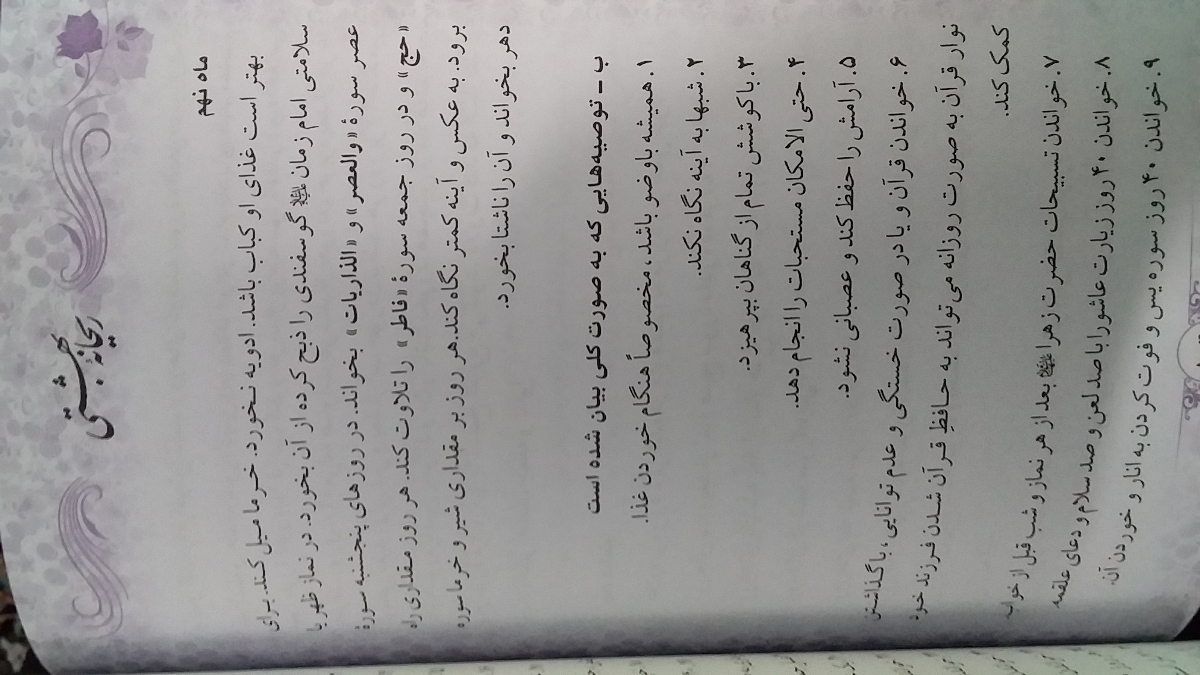 ریحانهٔ بهشتی
ماه نهم
بهتر است غذای او کباب باشد. ادویه نخورد. خرما میل کند. برای
سلامتی امام زمان گوسفندی را ذبح کرده از آن بخورد. در نماز ظهر یا
عصر سورهٔ «والعصر» و «الذاریات» بخواند. در روزهای پنجشنبه سورهٔ
«حج» و در روز جمعه سورهٔ «فاطر» را تلاوت کند. هر روز مقداری راه
برود. به عکس و آینه کمتر نگاه کند. هر روز بر مقداری شیر و خرما سوره
دهر بخواند و آن را ناشتا بخورد.
ب ـ توصیه‌هایی که به صورت کلی بیان شده است
۱. همیشه با وضو باشد، مخصوصاً هنگام خوردن غذا.
۲. شبها به آینه نگاه نکند.
۳. با کوشش تمام از گناهان بپرهیزد.
۴. حتی الامکان مستحبات را انجام دهد.
۵. آرامش را حفظ کند و عصبانی نشود.
۶. خواندن قرآن و یا در صورت خستگی و عدم توانایی، با گذاشتن
نوار قرآن به صورت روزانه می‌تواند به حافظِ قرآن شدن فرزند خود
کمک کند.
۷. خواندن تسبیحات حضرت زهرا بعد از هر نماز و شب قبل از خواب.
۸. خواندن ۴۰ روز زیارت عاشورا با صد لعن و صد سلام و دعای علقمه
۹. خواندن ۴۰ روز سوره یس و فوت کردن به انار و خوردن آن.